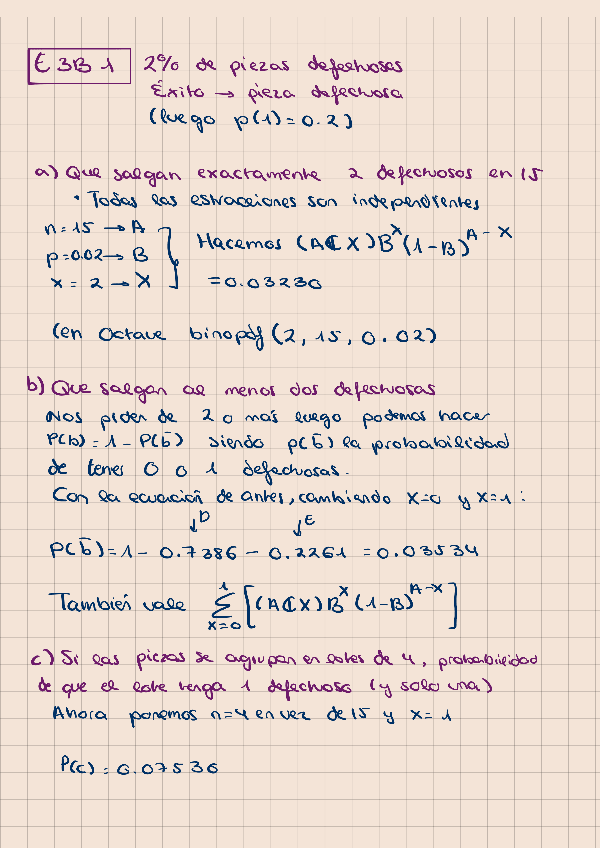 E 3B 1 2% de piezas defectuosas
Éxito → pieza defectuosa
(luego p(1)=0.2)
a) Que salgan exactamente 2 defectuosos en 15
• Todas las extracciones son independientes
n=15 → A
p=0.02 → B
x = 2 → X
Hacemos (A ℂ X) B^X (1-B)^(A-X)
=0.03230
(en Octave binopdf (2, 15, 0.02)
b) Que salgan al menos dos defectuosas
Nos piden de 2 o más luego podemos hacer
P(b)=1-P(b̄) siendo p(b̄) la probabilidad
de tener 0 o 1 defectuosas.
Con la ecuación de antes, cambiando X=0 y X=1:
↓D ↓E
P(b̄)=1- 0.7386 - 0.2261 = 0.03534
También vale ∑_{X=0}^{1} [(A ℂ X) B^X (1-B)^(A-X)]
c) Si las piezas se agrupan en lotes de 4, probabilidad
de que el lote tenga 1 defectuoso (y solo una)
Ahora ponemos n=4 en vez de 15 y x=1
P(c)=0.07530